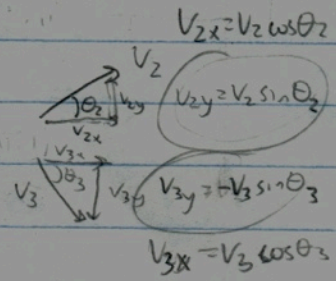 V₂ₓ = V₂ cosθ₂
V₂
θ₂ V₂y V₂y = V₂ sinθ₂
V₂ₓ
V₃ₓ
θ₃
V₃ V₃y V₃y = -V₃ sinθ₃
V₃ₓ = V₃ cosθ₃